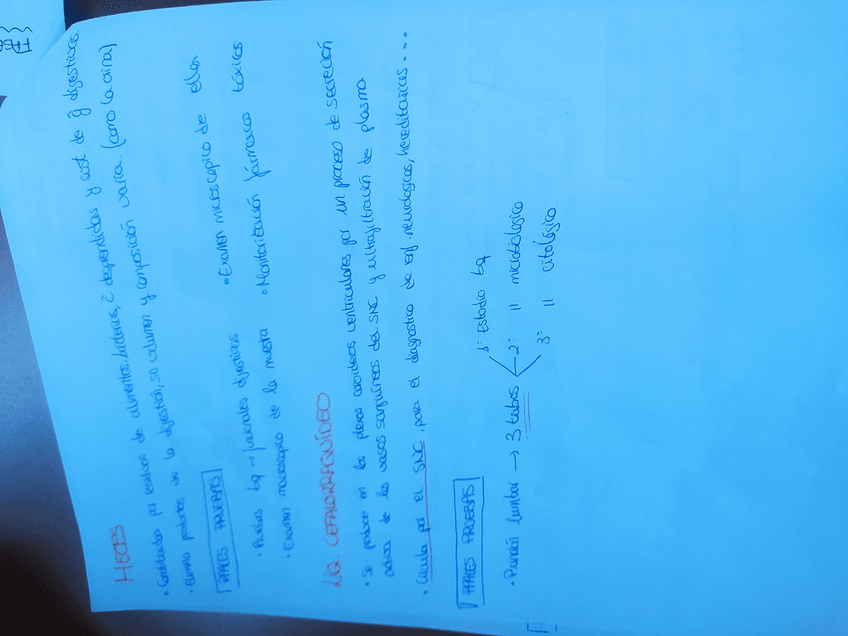 HECES
• Constituidas por residuos de alimentos, bacterias, ĉ desprendidas y sust de ĝ digestivas
• Elimina productos de la digestión, su volumen y composición varía. (como la orina)
PPALES PRUEBAS
• Pruebas bq → funcionales digestivas • Examen microscópico de ellas
• Examen macroscópico de la muestra • Monitorización fármacos tóxicos
LIQ. CEFALORRAQUÍDEO
• Se produce en los plexos coroideos ventriculares por un proceso de secreción
activa de los vasos sanguíneos del SNC y ultrafiltración de plasma
• Circula por el SNC, para el diagnóstico de enf neurológicas, hereditarias...
PPALES PRUEBAS
• Punción lumbar → 3 tubos
1º Estudio bq
2º 11 microbiológico
3º 11 citológico.